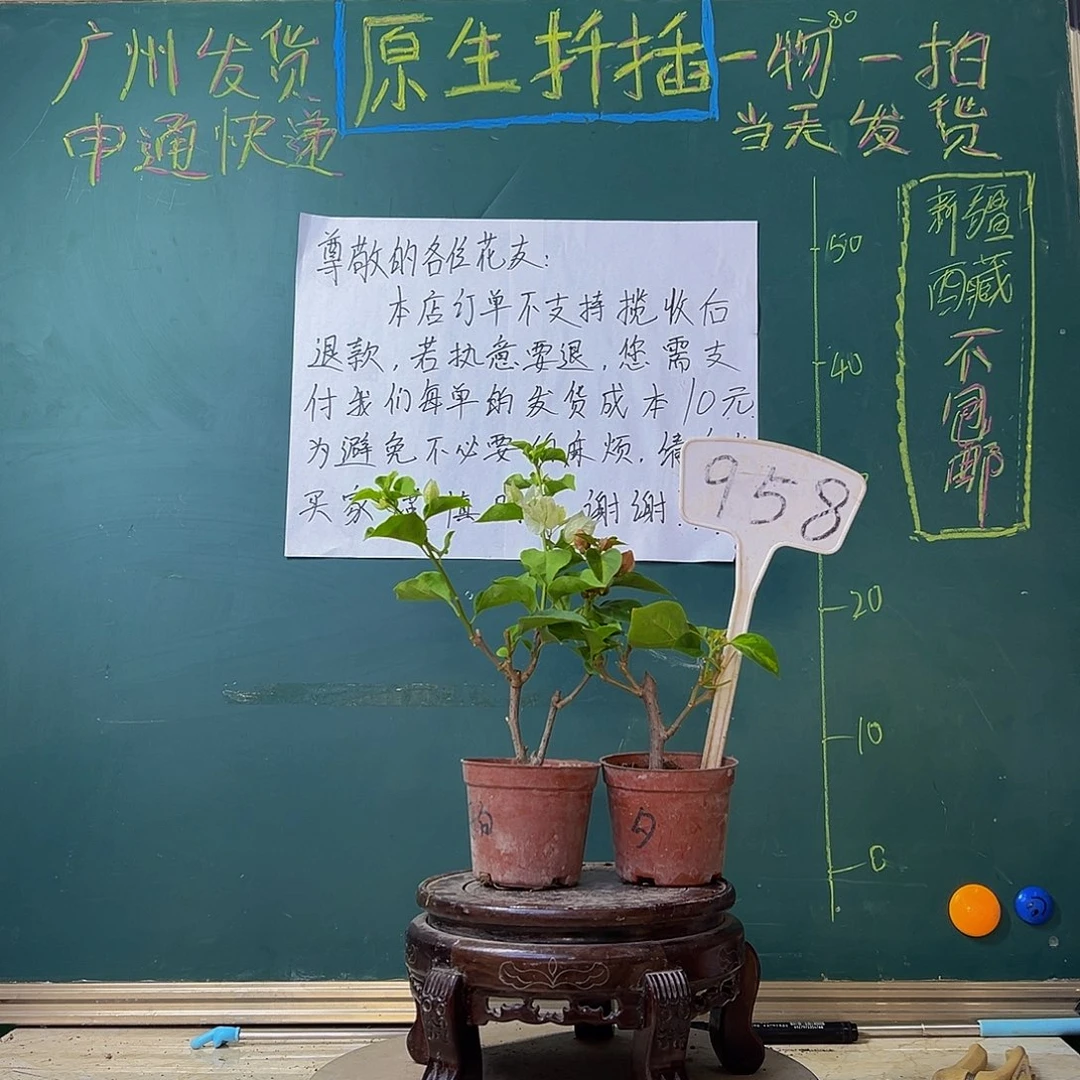 广州发货
申通快递
原生扦插
一物一拍
80
当天发货
新疆
西藏
不
包
邮
尊敬的各位花友:
本店订单不支持揽收后
退款,若执意要退,您需支
付我们每单的发货成本10元
为避免不必要 麻烦,
买家 谢谢!
50
40
20
10
0
958
白
夕